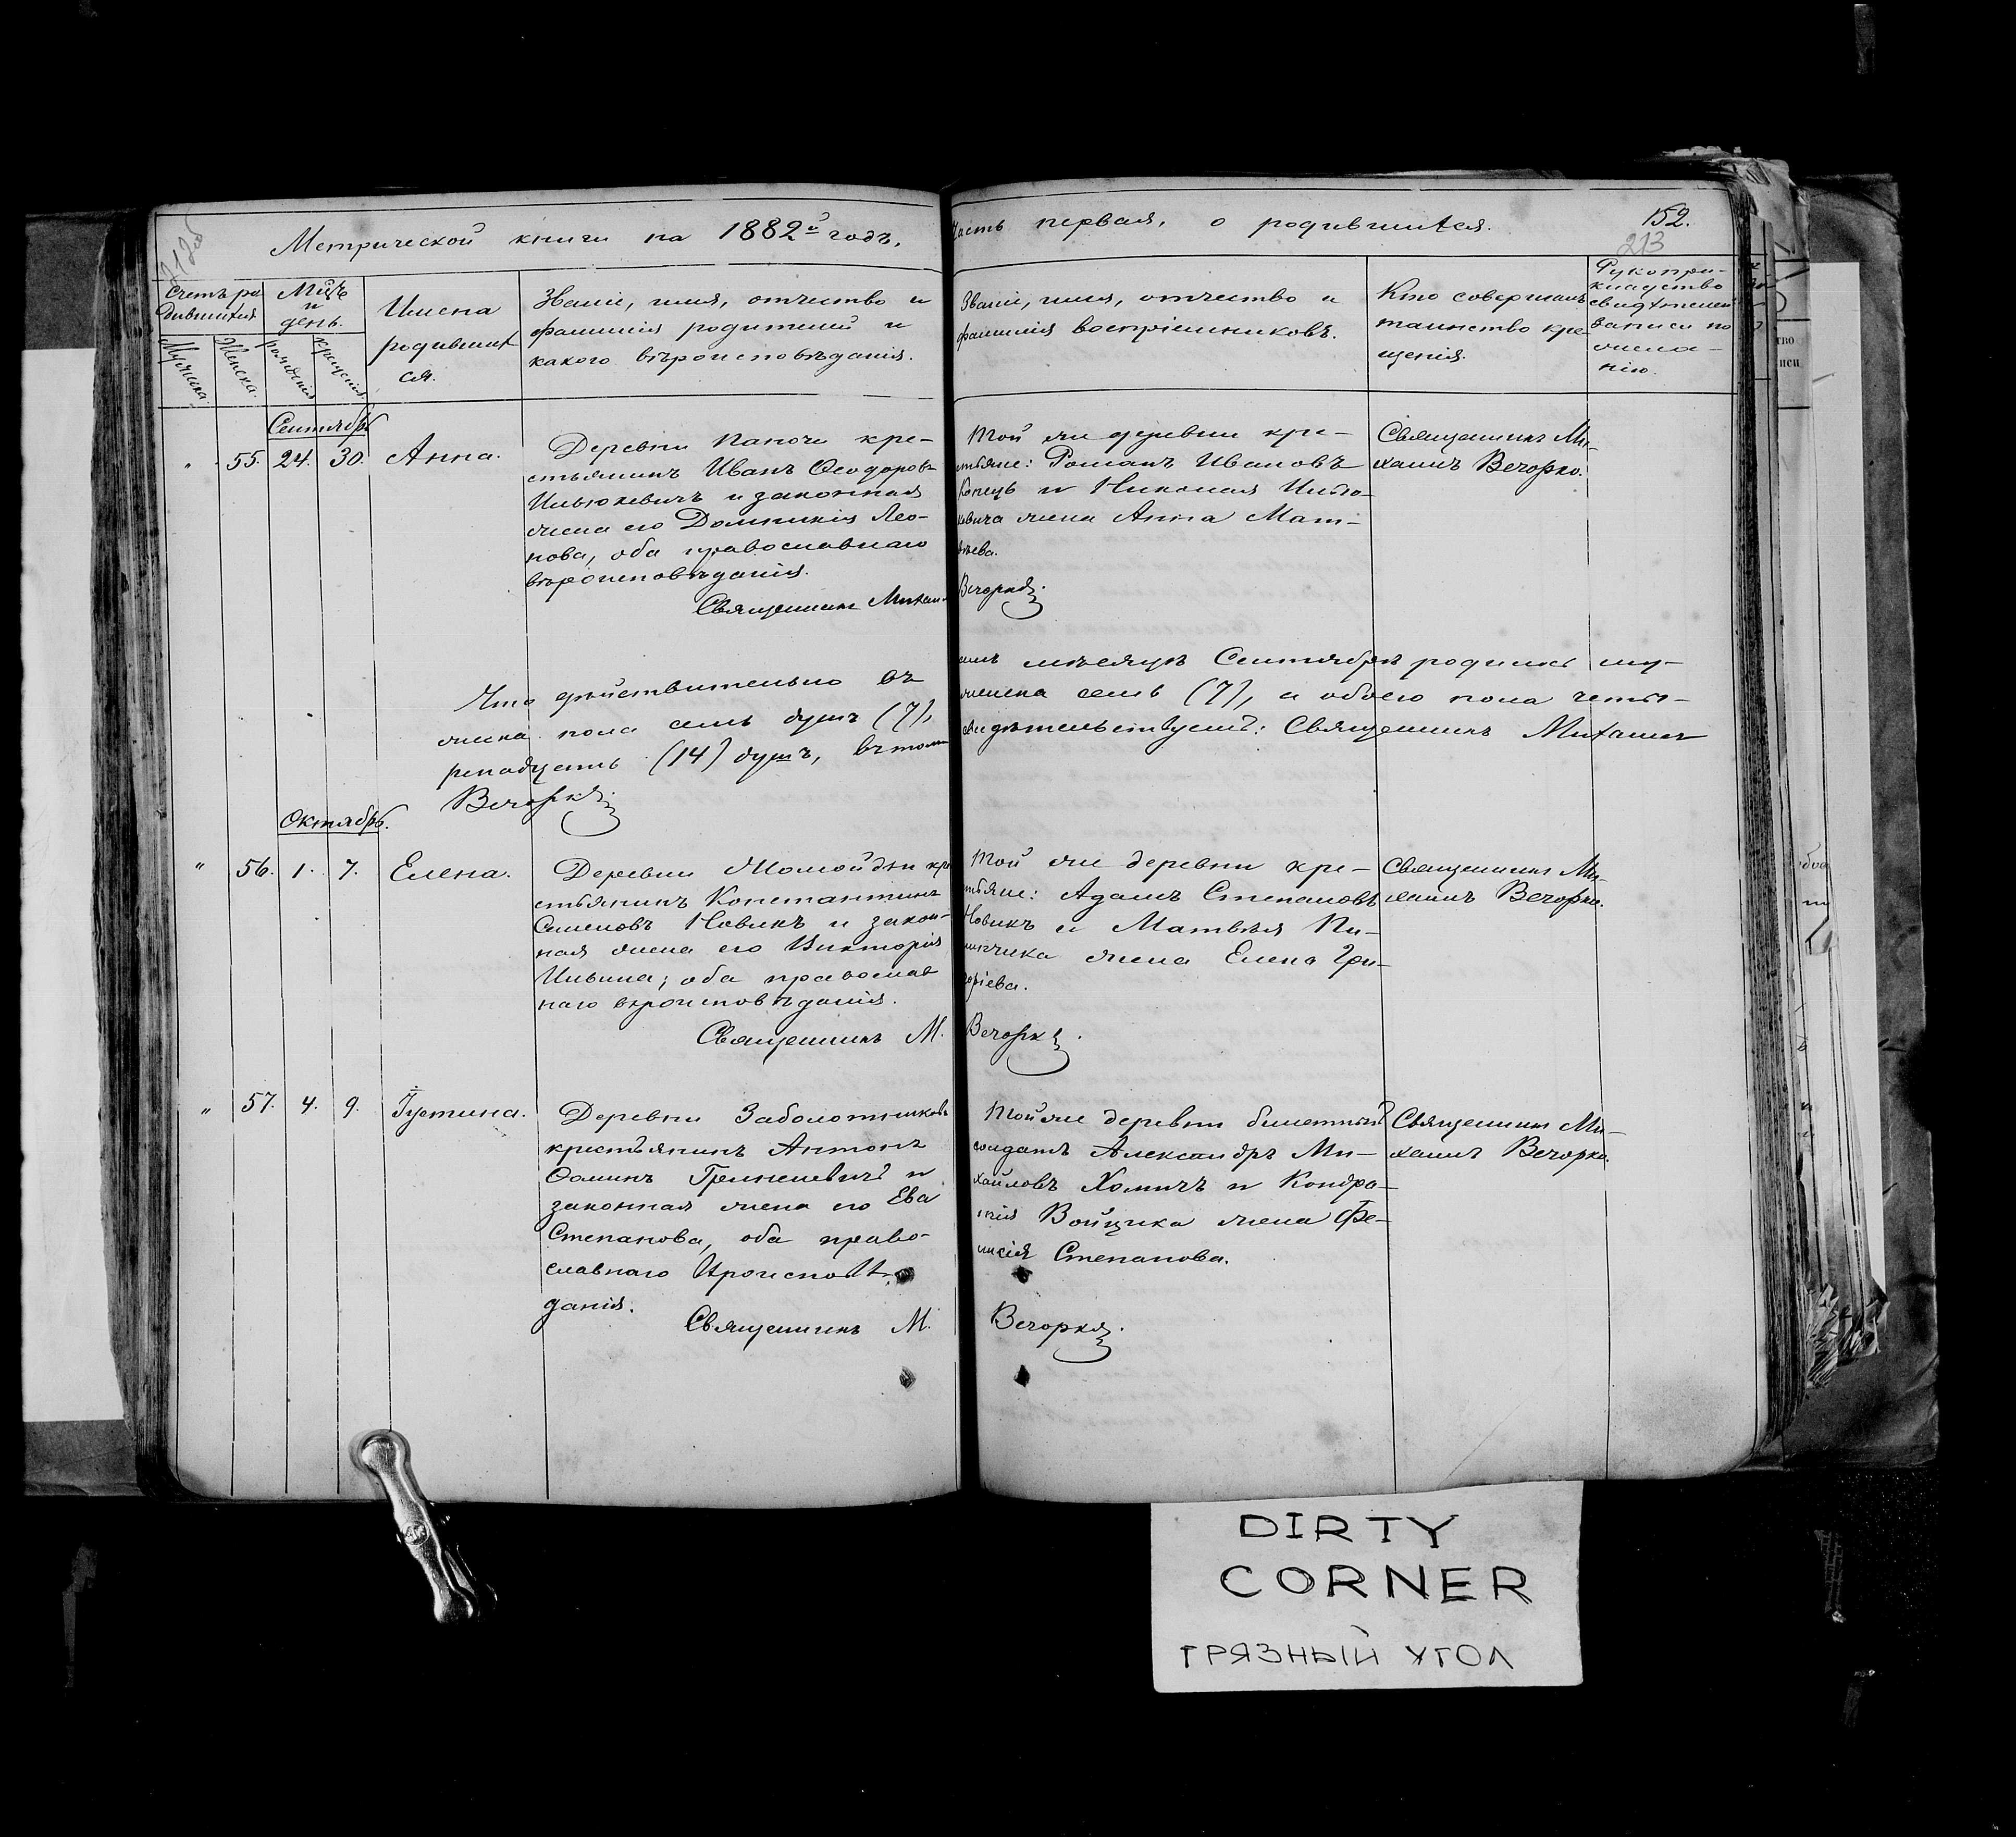 Метрической книги на 1882й годъ,
часть первая, о родившихся.
152.
213
Счетъ ро
дившихся
Мцъ
и
день.
Имена
родивших
ся.
Званіе, имя, отчество и
фамилія родителей и
какого вѣроисповѣданія.
Званіе, имя, отчество и
фамилія воспріемниковъ.
Кто совершалъ
таинство кре-
щенія.
Рукопри-
кладство
свидѣтелей
записи по
жела-
нію.
Мужеска.
Женска.
рожденія
крещенія
Сентябрь
" 55. 24. 30. Анна.
Деревни Паночи кре-
стьянинъ Иванъ Ѳеодоровъ
Ильюкевичъ и законная
жена его Домникія Лео-
нова, оба православнаго
вѣроисповѣданія.
Священникъ Михаи-
Той же деревни кре-
стьяне: Романъ Ивановъ
Копецъ и Николая Илью-
кевича жена Анна Мат-
вѣева.
Вечорко.
Священникъ Ми-
хаилъ Вечорко.
Что дѣйствительно въ
семъ мѣсяцѣ Сентябрѣ родилось му-
жеска пола семь душъ (7),
женска семь (7), а обоего пола четы-
рнадцать (14) душъ, въ томъ
свидѣтельствуетъ: Священникъ Михаилъ
Вечорко.
Октябрь.
" 56. 1. 7. Елена.
Деревни Жомойдзи кре
стьянинъ Константинъ
Семеновъ Новикъ и закон-
ная жена его Викторія
Ильина; оба православ
наго вѣроисповѣданія.
Священникъ М.
Той же деревни кре-
стьяне: Адамъ Степановъ
Новикъ и Матвѣя Пи-
липчика жена Елена Гри-
горіева.
Вечорко.
Священникъ Ми-
хаилъ Вечорко.
" 57. 4. 9. Іустина.
Деревни Заболотниковъ
крестьянинъ Антонъ
Ѳоминъ Гринкевичъ и
законная жена его Ева
Степанова, оба право-
славнаго вѣроисповѣ-
данія.
Священникъ М.
Той же деревни билетный
солдатъ Александръ Ми-
хайловъ Хомичъ и Кондра-
тія Войцика жена Фе-
лисія Степанова.
Вечорко.
Священникъ Ми-
хаилъ Вечорко.
DIRTY
CORNER
ГРЯЗНЫЙ УГОЛ